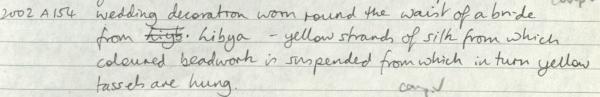 2002 A154 wedding decoration worn round the waist of a bride
from Libya - yellow strands of silk from which
coloured beadwork is suspended from which in turn yellow
tassels are hung.